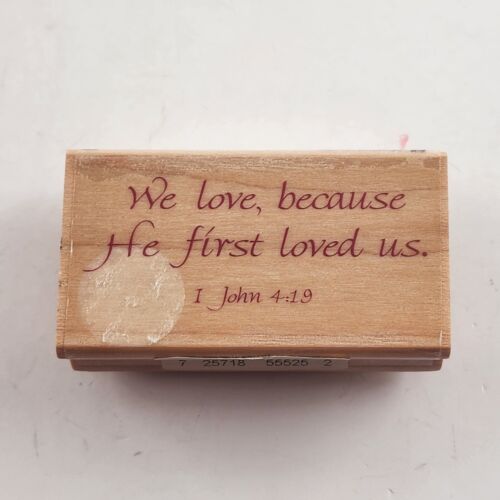 We love, because
He first loved us.
I John 4:19
7 25718 55525 2